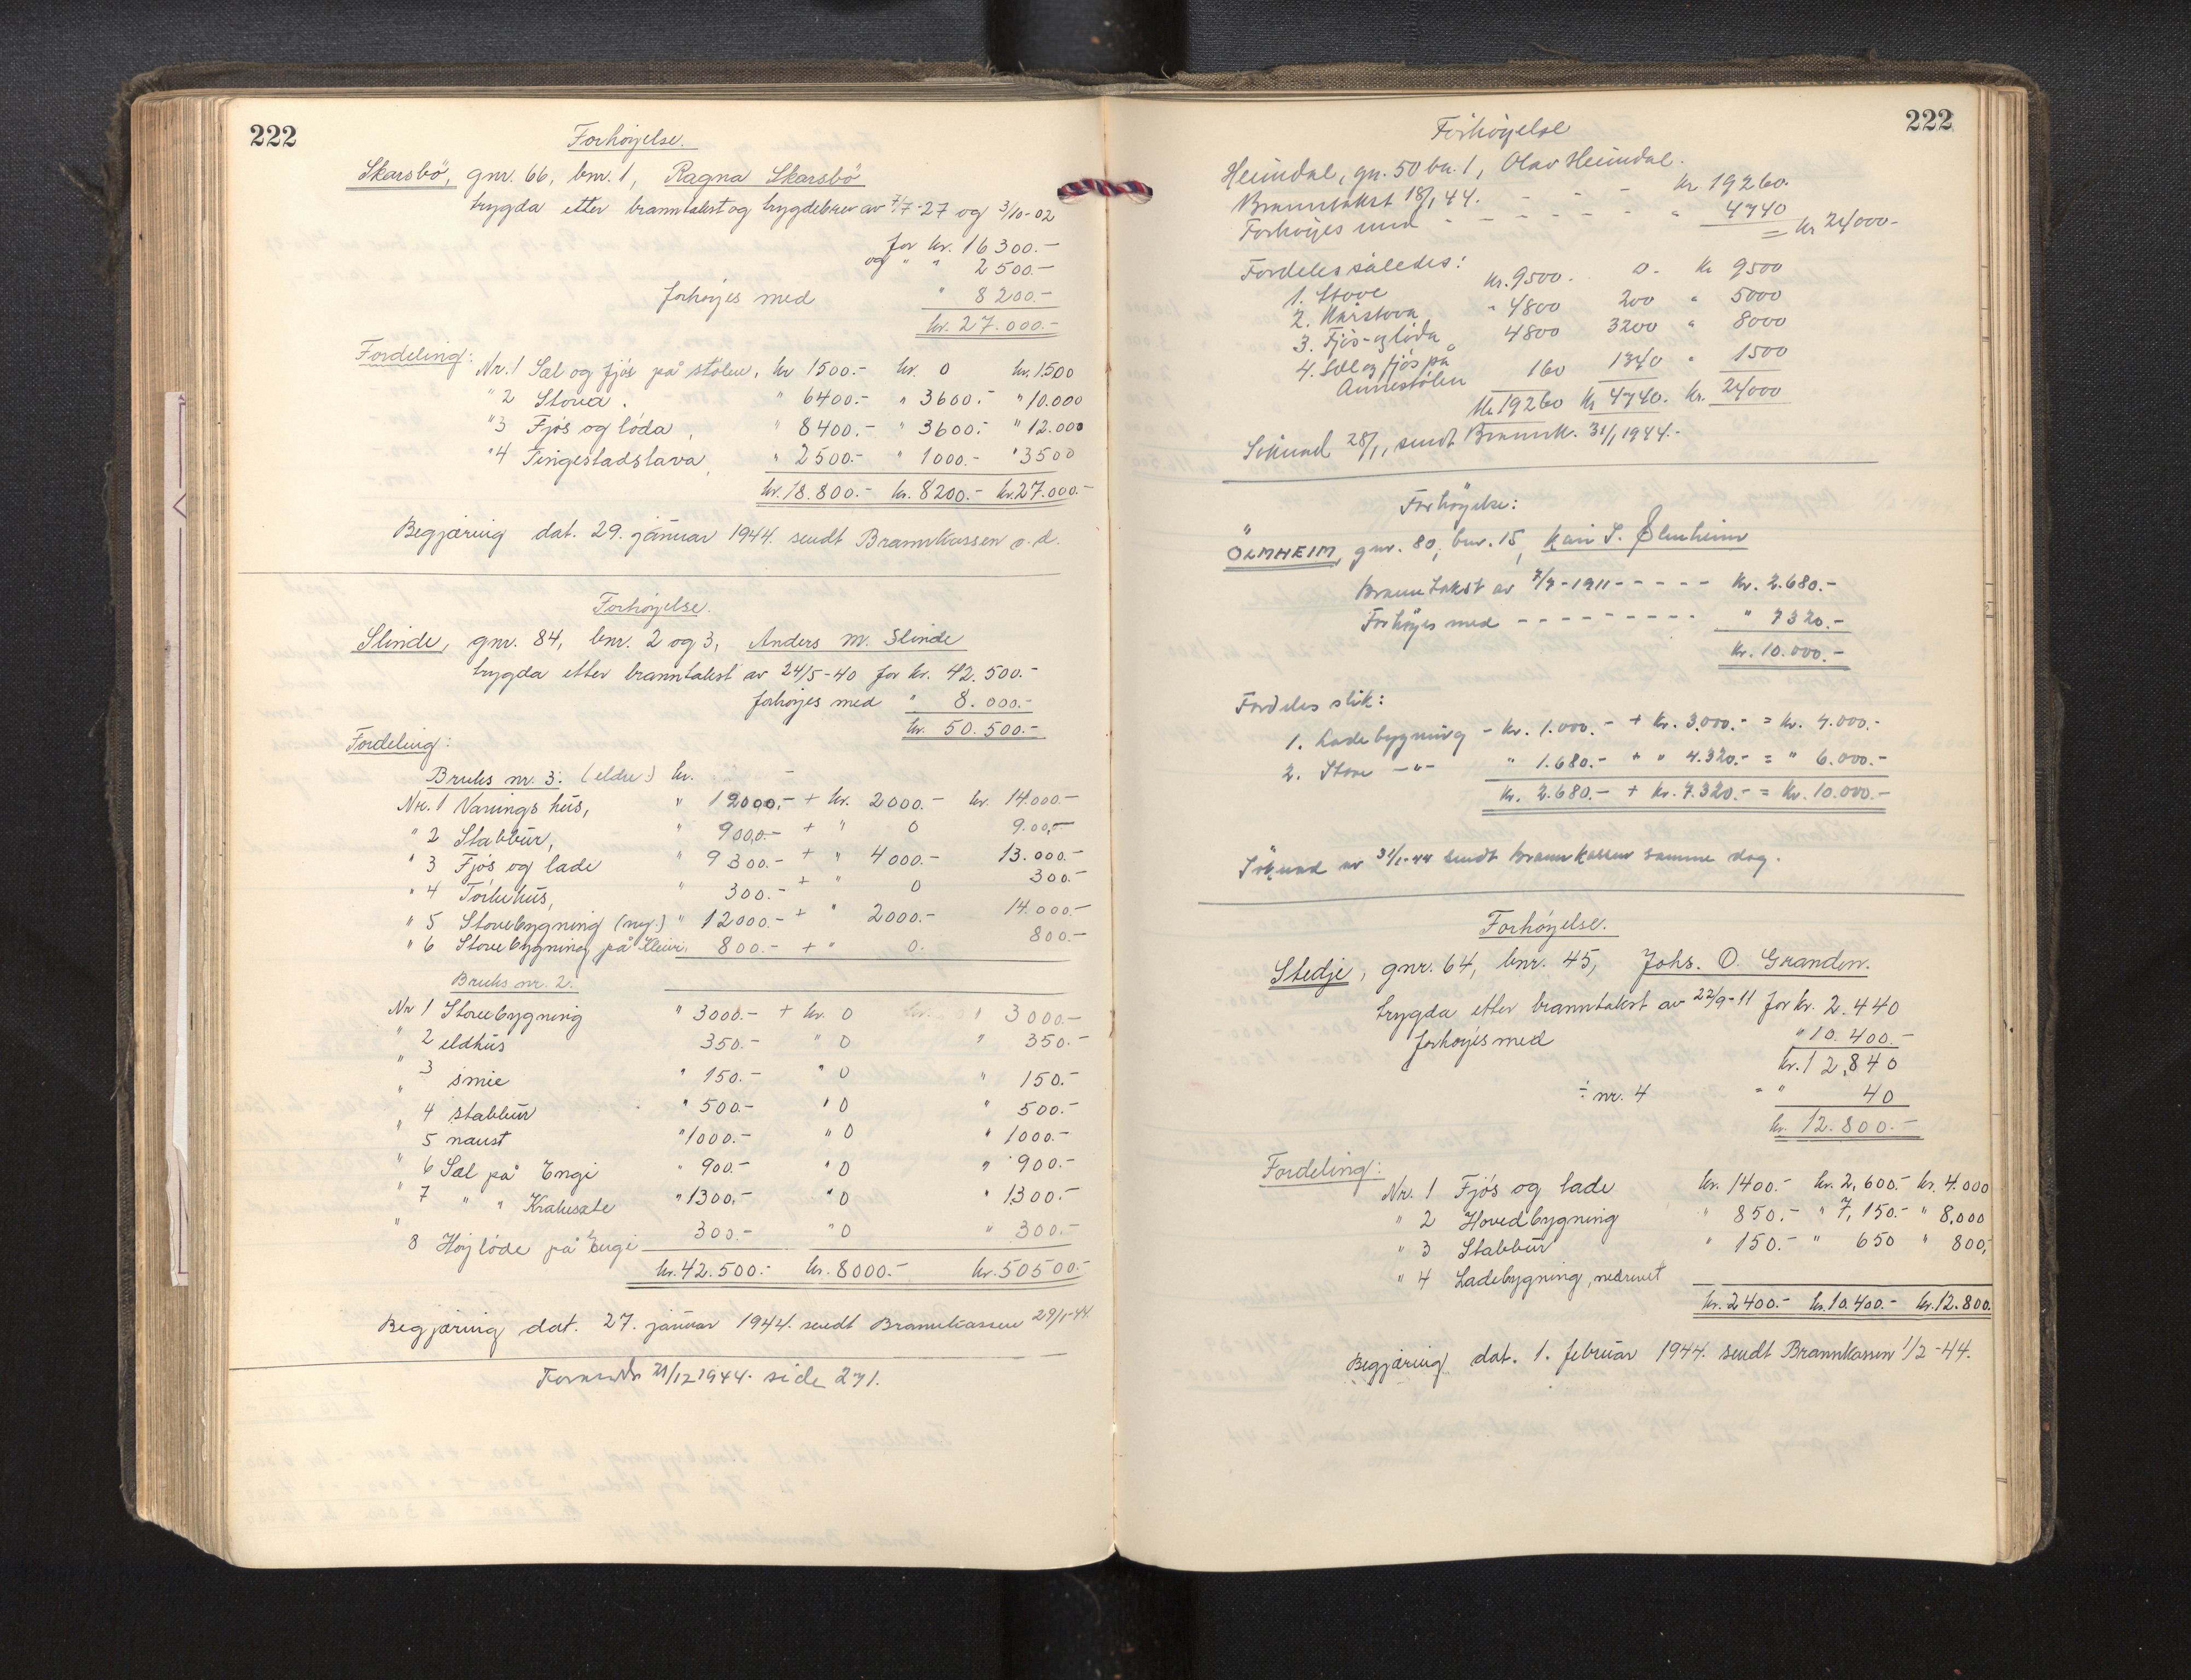 222
Forhøyelse.
Skarsbö, gnr. 66, bnr. 1, Ragna Skarsbö
trygda etter branntakst og trygdebrev av 7/7-27 og 3/10-02
for kr. 16300.-
og " " 2500.-
forhøyes med " 8200.-
kr. 27.000.-
Fordeling:
Nr. 1 Sæl og fjös på stölen, kr 1500.- kr. 0 kr. 1500
" 2 Stova. " 6400.- " 3600.- " 10.000
" 3 Fjös og löda, " 8400.- " 3600.- " 12.000
" 4 Tingestadstava, " 2500.- " 1000.- " 3500
kr. 18.800.- kr. 8200.- kr. 27.000.-
Begjæring dat. 29. januar 1944. sendt Brannkassen s. d.
Forhøyelse.
Slinde, gnr. 84, bnr. 2 og 3, Anders M. Slinde
trygda etter branntakst av 24/5-40 for kr. 42.500.-
forhøyes med " 8.000.-
kr. 50.500.-
Fordeling:
Bruks nr. 3. (eldre) kr. -
Nr. 1 Vaningshus, " 12000.- + kr. 2000.- kr. 14.000.-
" 2 Stabbur, " 900,0.- + " 0 9.00,-
" 3 Fjös og lade " 9300.- + " 4000.- 13.000.-
" 4 Torkehus, " 300.- + " 0 300.-
" 5 Stovebygning (ny.) " 12000.- + " 2000.- 14.000.-
" 6 Stovebygning på 800.- + " 0. 800.-
Bruks nr. 2.
Nr 1 Stovebygning " 3000.- + kr. 0 " 3000.-
" 2 eldhus 350.- " 0 " 350.-
" 3 smie " 150.- " 0 " 150.-
" 4 stabbur " 500.- " 0 " 500.-
" 5 naust " 1000.- " 0 " 1000.-
" 6 Sæl på Engi " 900.- " 0 " 900.-
" 7 " " Krakusete " 1300.- " 0 " 1300.-
" 8 Høylöde på Engi 300.- " 0 " 300.-
kr. 42.500.- kr. 8000.- kr. 50500.-
Begjæring dat. 27. januar 1944. sendt Brannkassen 29/1-44.
21/12 1944. side 271.
222
Forhøyelse
Heimdal, gn. 50 bn. 1, Olav Heimdal.
Branntakst 18/1 44. - - - kr 19260.
Forhøyes med - - - - - " 4740
= kr 24000-
Fordeles således:
1. Stove kr. 9500. 0. kr 9500
2. Kårstova " 4800 200 " 5000
3. Fjös- og löda 4800 3200 " 8000
4. Sæl og fjös på
Annestölen 160 1340 " 1500
kr 19260 kr 4740. kr. 24000
Söknad 28/1, sendt Brannk. 31/1 1944.-
Forhøyelse:
ÖLMHEIM, gnr. 80, bnr. 15, Kari S. Ölmheim
Branntakst av 7/7-1911 - - - - - kr. 2.680.-
Forhøyes med - - - - - - - - - " 7320.-
kr. 10.000.-
Fordeles slik:
1. Ladebygning - kr. 1.000.- + kr. 3.000.- = kr. 4.000.-
2. Stove -"- " 1.680.- + " 4.320.- = " 6.000.-
kr. 2.680.- + kr. 7.320.- = kr. 10.000.-
Söknad av 31/1-44 sendt Brannkassen samme dag.
Forhøyelse.
Stedje, gnr. 64, bnr. 45, Johs. O. Granden.
trygda etter branntakst av 22/9-11 for kr. 2.440
forhøyes med " 10.400.-
kr. 12,840
÷ nr. 4 = " 40
kr. 12.800.-
Fordeling:
Nr. 1 Fjös og lade kr. 1400.- kr. 2,600.- kr. 4.000
" 2 Hovedbygning " 850.- " 7,150.- " 8,000
" 3 Stabbur " 150.- " 650 " 800,
" 4 Ladebygning, nedrevet
kr. 2400.- kr. 10.400.- kr. 12.800.
Begjæring dat. 1. februar 1944. sendt Brannkassen 1/2-44.